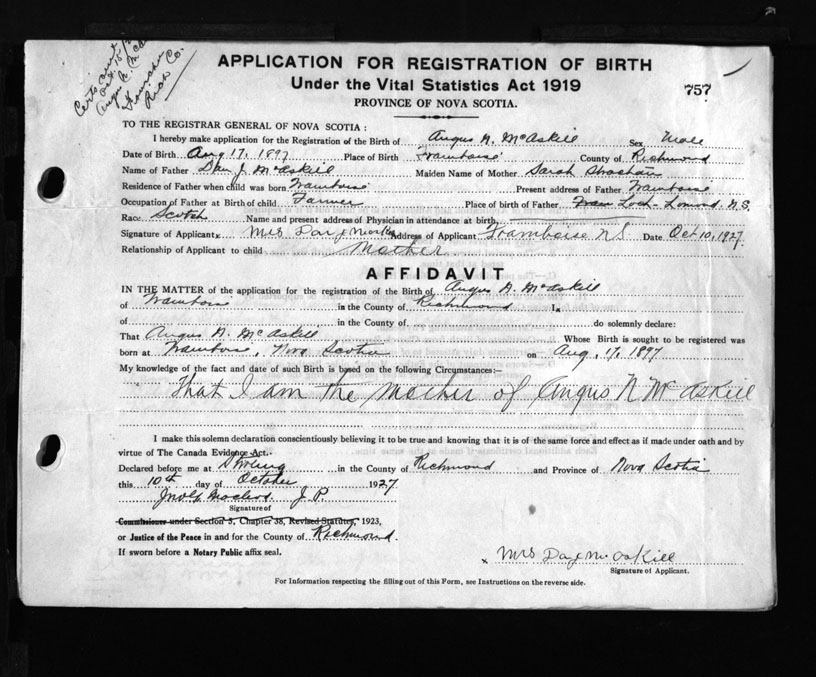 Certs issued
Oct 15/
Angus N. McA
Framboise
Rich Co.
APPLICATION FOR REGISTRATION OF BIRTH
Under the Vital Statistics Act 1919
757
PROVINCE OF NOVA SCOTIA.
TO THE REGISTRAR GENERAL OF NOVA SCOTIA:
I hereby make application for the Registration of the Birth of Angus N. McAskill Sex Male
Date of Birth Aug 17, 1897 Place of Birth Framboise County of Richmond
Name of Father Dan J. McAskill Maiden Name of Mother Sarah Strachan
Residence of Father when child was born Framboise Present address of Father Framboise
Occupation of Father at Birth of child Farmer Place of birth of Father Loch Lomond N.S.
Race Scotch Name and present address of Physician in attendance at birth
Signature of Applicant x Mrs Dan J McAskill Address of Applicant Framboise N S Date Oct 10, 1927
Relationship of Applicant to child Mother
AFFIDAVIT
IN THE MATTER of the application for the registration of the Birth of Angus N. McAskill
of Framboise in the County of Richmond I,
of in the County of do solemnly declare:
That Angus N. McAskill Whose Birth is sought to be registered was
born at Framboise, Nova Scotia on Aug, 17, 1897
My knowledge of the fact and date of such Birth is based on the following Circumstances:—
That I am the mother of Angus N McAskill
I make this solemn declaration conscientiously believing it to be true and knowing that it is of the same force and effect as if made under oath and by
virtue of The Canada Evidence Act.
Declared before me at Stirling in the County of Richmond and Province of Nova Scotia
this 10th day of October 1927
Jno. McLeod. J.P.
Signature of
Commissioner under Section 5, Chapter 38, Revised Statutes, 1923,
or Justice of the Peace in and for the County of Richmond.
If sworn before a Notary Public affix seal.
x Mrs Dan J McAskill
Signature of Applicant.
For Information respecting the filling out of this Form, see Instructions on the reverse side.